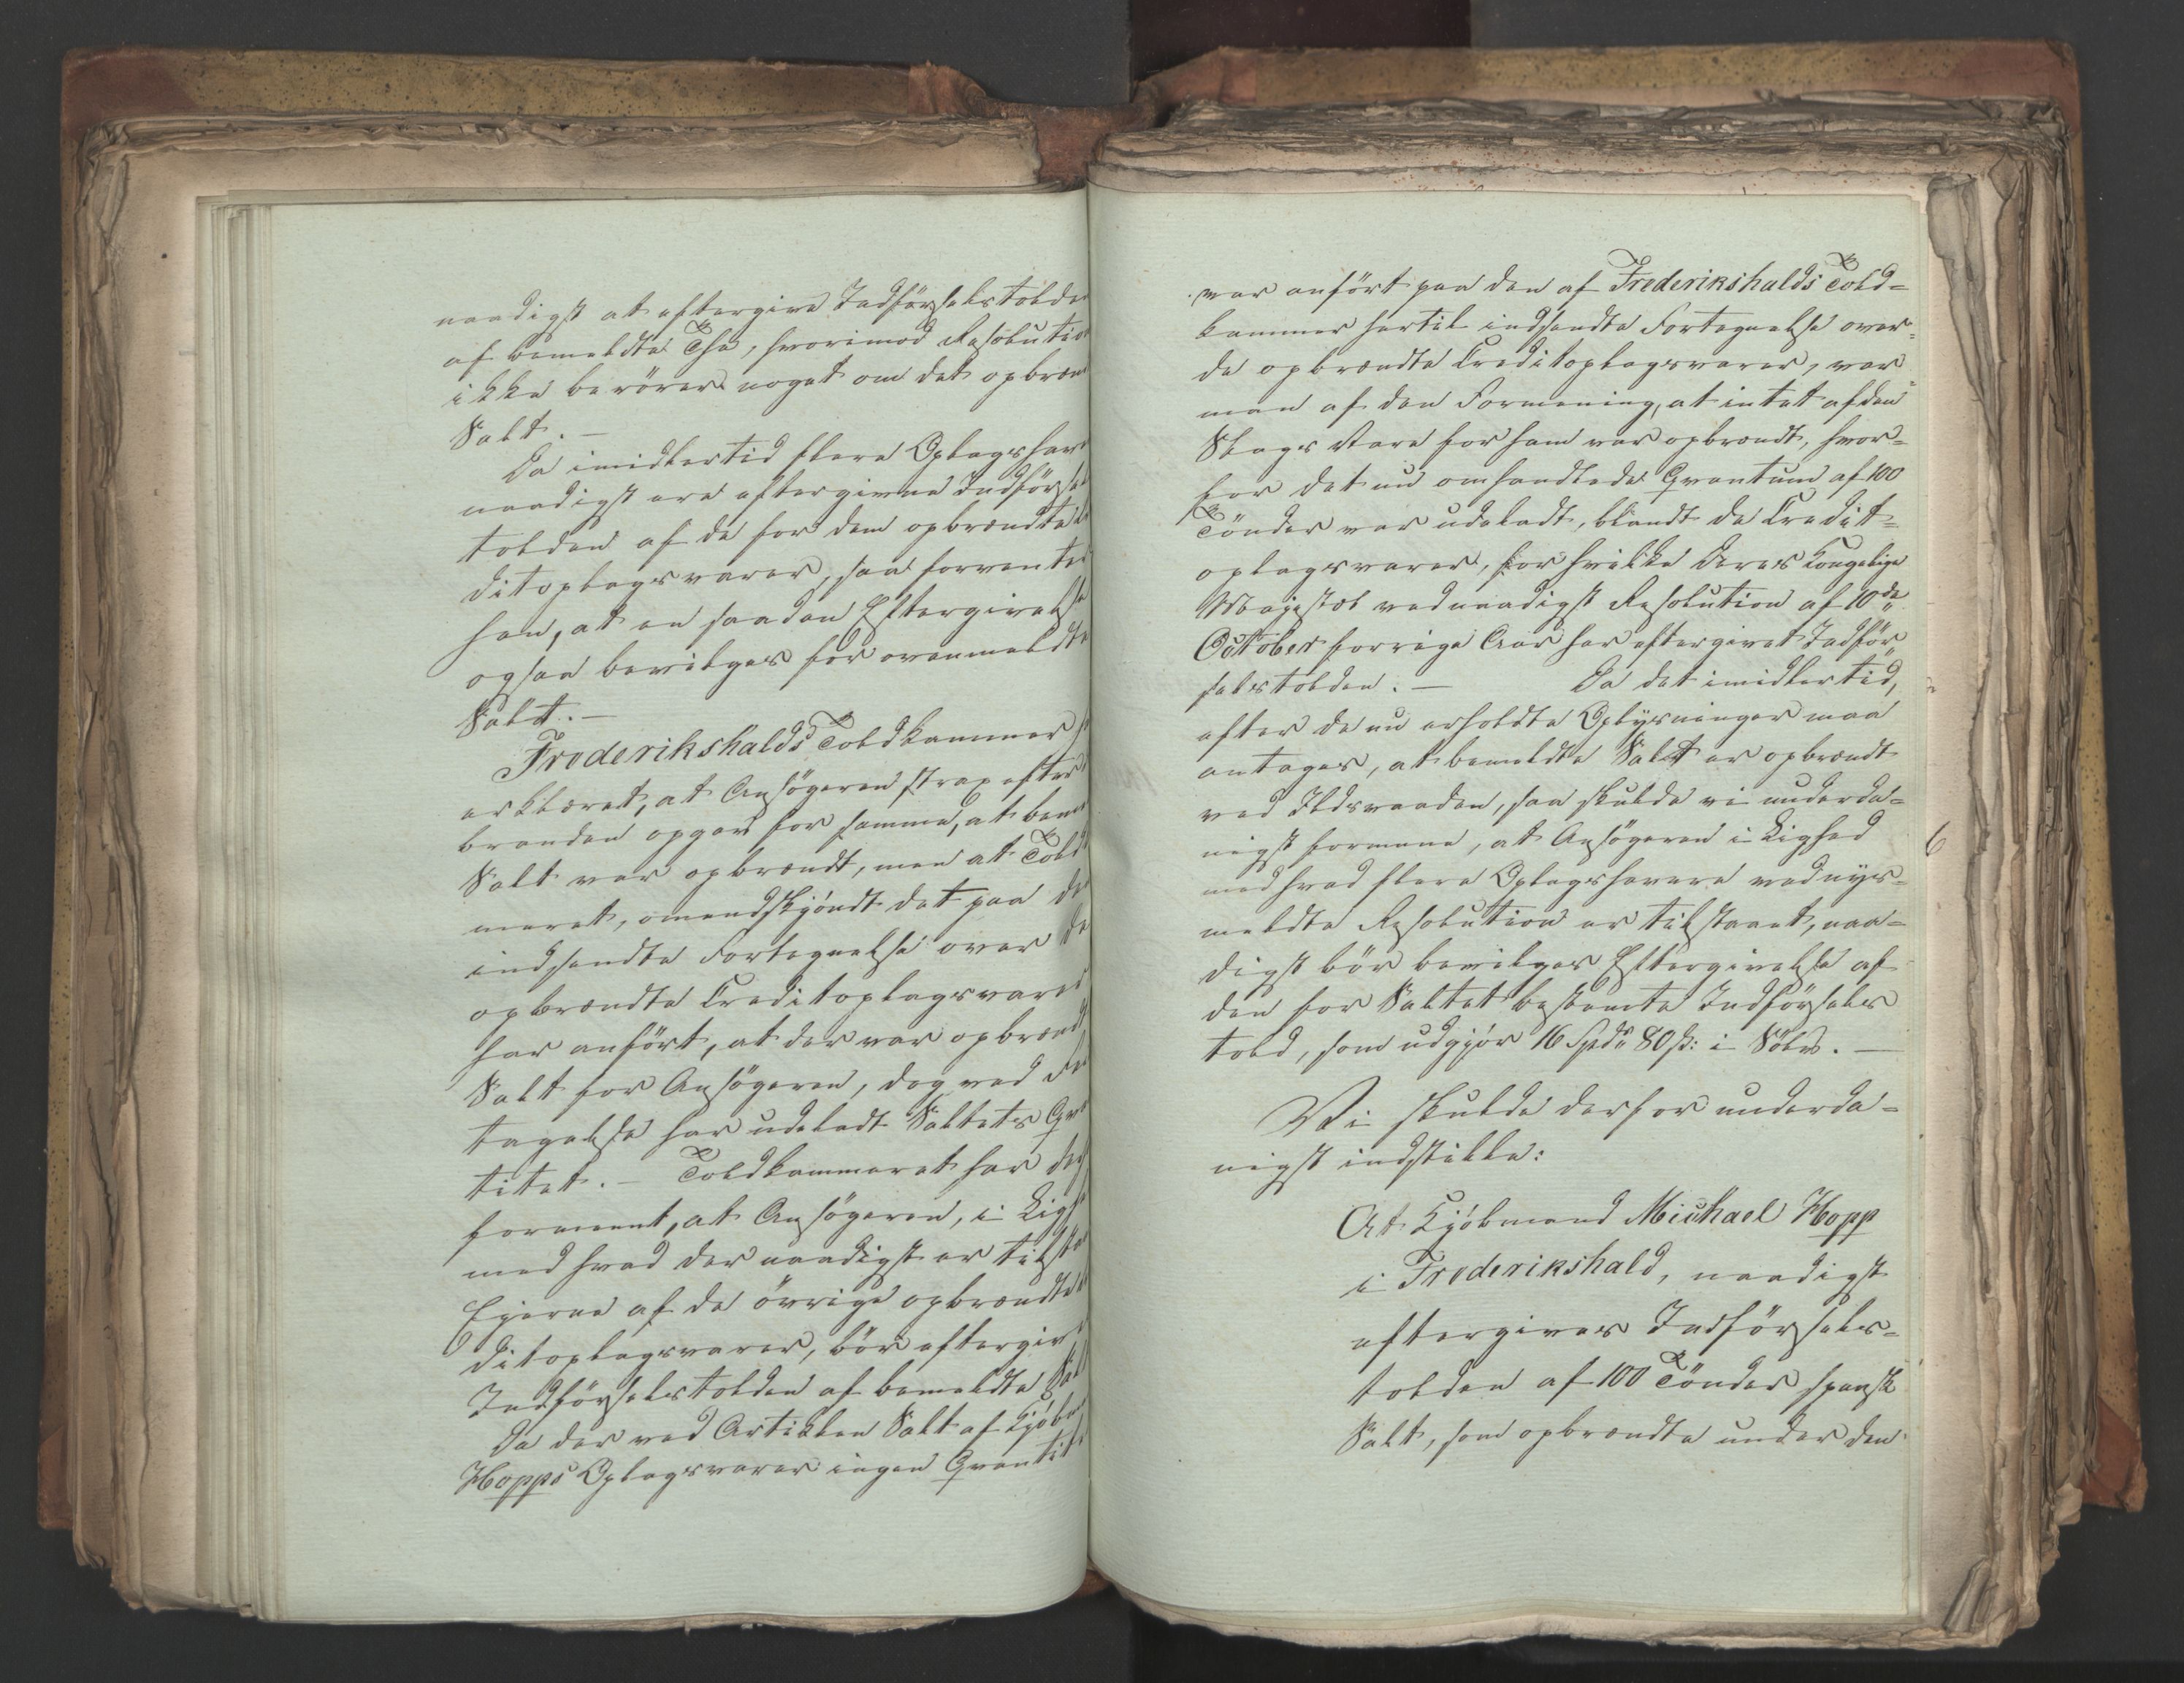 naadigst at eftergive Indførselstolde
af bemeldte The, hvorimod Resolutio
ikke berører noget om det opbræn
Salt. —
Da imidlertid flere Oplagshav
naadigst ere eftergivne Indførse
tolden af de for dem opbrændte
ditoplagsvarer, saa forvente
han, at en saadan Eftergivelse
ogsaa bevilges for ovenmeldte
Salt. —
Frederikshalds Toldkammer h
erklæret, at Ansøgeren strax efter
branden opgav for samme, at bem
Salt var opbrændt, men at Told
meret, omendskjøndt det paa d
indsendte Fortegnelse over d
opbrændte Creditoplagsvarer
har anført, at der var opbrændt
Salt for Ansøgeren, dog ved F
tagelse har udeladt Saltets Qv
titet. — Toldkammeret har d
formeent, at Ansøgeren, i Ligh
med hvad der naadigst er tilsta
Eierne af de øvrige opbrændte
ditoplagsvarer, bør eftergiv
Indførselstolden af bemeldte Sal
Da der ved Artiklen Salt af Kjøbm
Hopps Oplagsvarer ingen Qvantit
var anført paa den af Frederikshalds Told=
kammer hertil indsendte Fortegnelse over
de opbrændte Creditoplagsvarer, var
man af den Formening, at intet af den
Slags Vare for ham var opbrændt, hvor=
for det nu omhandlede Qvantum af 100
Tønder var udeladt, blandt de Credit=
oplagsvarer, for hvilke Deres Kongelige
Majestæt ved naadigst Resolution af 10de
October forrige Aar har eftergivet Indfør„
selstolden. — Da det imidlertid,
efter de nu erholdte Oplysninger maa
antages, at bemeldte Salt er opbrændt
ved Ildsvaaden, saa skulde vi underda=
nigst formene, at Ansøgeren i Lighed
med hvad flere Oplagshavere ved nys=
meldte Resolution er tilstaaet, naa=
digst bør bevilges Eftergivelse af
den for Saltet bestemte Indførsels
told, som udgjør 16 Spdr 80 ß: i Sølv. —
Vi skulde derfor underda=
nigst indstille:
At Kjøbmand Michael Hopp
i Frederikshald, naadigst
eftergives Indførsels=
tolden af 100 Tønder spansk
Salt, som opbrændte under den